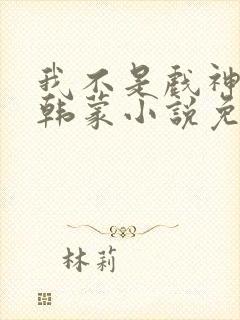 我不是戏神
韩蒙小说免
林莉